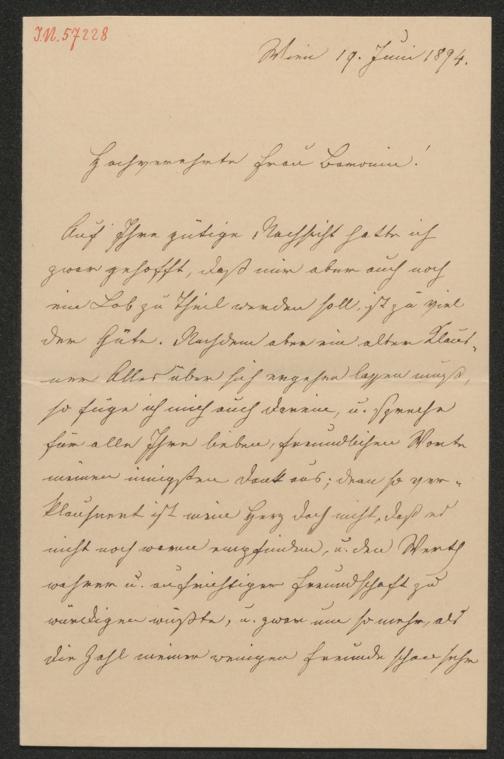 I.N. 57228
Wien 19. Juni 1894.
Hochverehrte Frau Baronin!
Auf Ihre gütige Nachsicht hatte ich
zwar gehofft, daß mir aber auch noch
ein Lob zu Theil werden soll, ist zu viel
der Güte. Nachdem aber ein alter Klaus-
ner Alles über sich ergehen lassen muß,
so füge ich mich auch darein, u. spreche
für alle Ihre lieben, freundlichen Worte
meinen innigsten Dank aus; denn so ver-
klausnert ist mein Herz doch nicht, daß es
nicht noch warm empfinden, u. den Werth
wahrer u. aufrichtiger Freundschaft zu
würdigen wüßte, u. zwar um so mehr, als
die Zahl meiner wenigen Freunde schon sehr